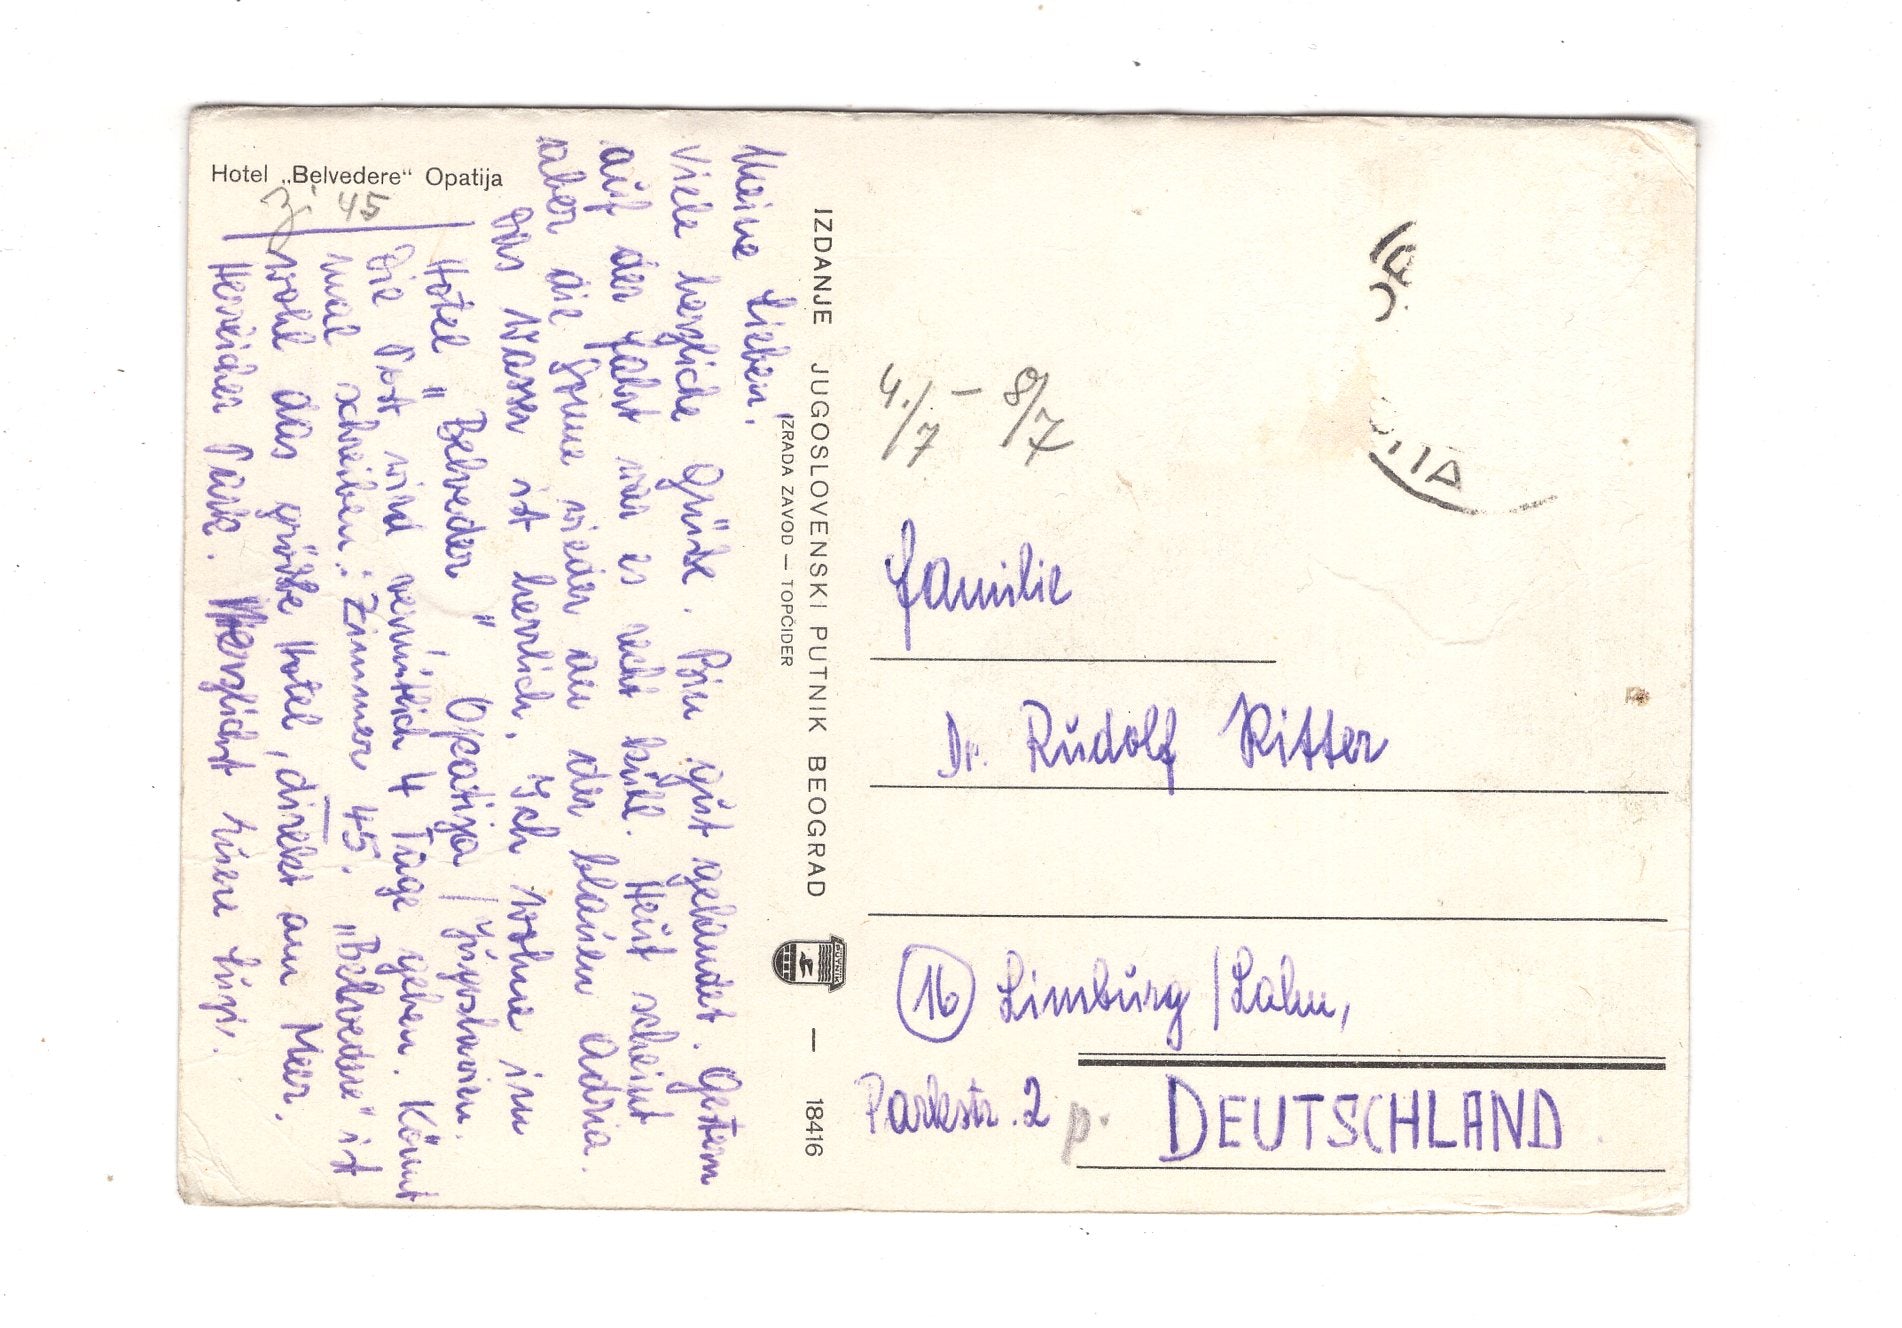 Hotel „Belvedere“ Opatija
Zi 45
Meine Lieben,
Viele herzliche Grüße. Bin gut gelandet. Gestern
auf der Fahrt war es recht kühl. Heut scheint
aber die Sonne wieder an der blauen Adria.
Das Wasser ist herrlich. Ich wohne im
Hotel "Belveder" Opatija / Jugoslavien.
Die Post wird vermutlich 4 Tage gehen. Könnt
mal schreiben: Zimmer 45. "Belvedere" ist
wohl das größte Hotel, direkt am Meer.
Herrlicher Park. Herzlichst Eure
IZRADA ZAVOD — TOPČIDER
IZDANJE JUGOSLOVENSKI PUTNIK BEOGRAD — 18416
PUTNIK
4./7 – 8/7
Familie
Dr. Rudolf Ritter
(16) Limburg/Lahn,
Parkstr. 2
p.
DEUTSCHLAND